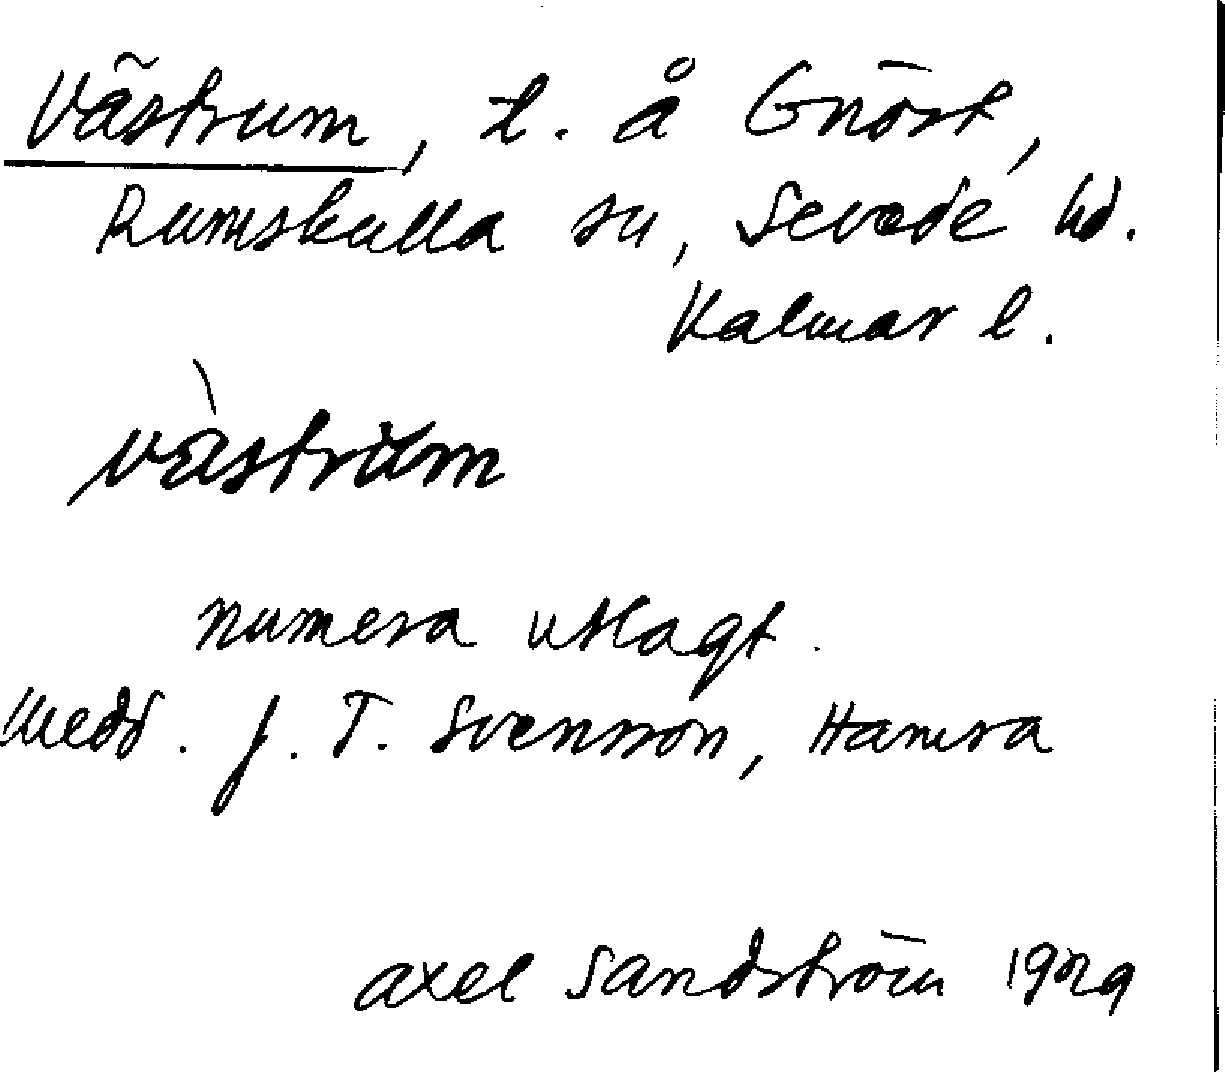 Västrum, t. å Gnöst,
Rumskulla sn, Sevede hd.
Kalmar l.
västrum
numera utlagt.
Medd. J. T. Svensson, Hamra
Axel Sandström 1929